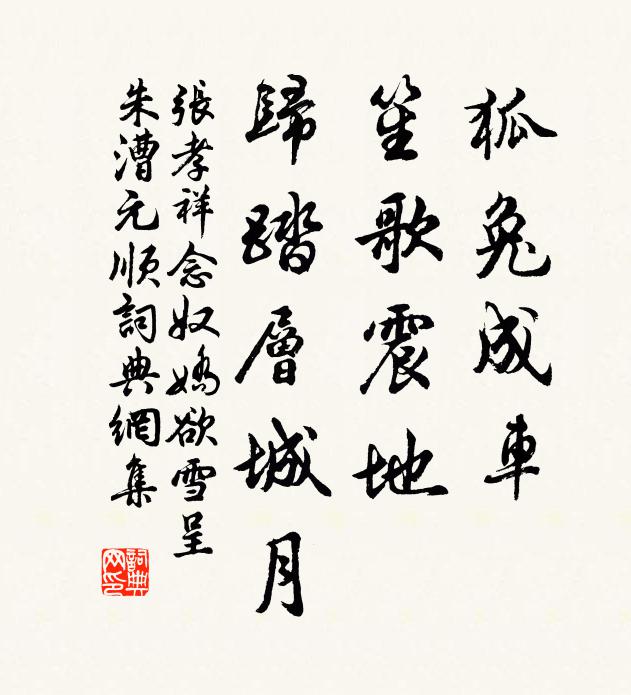 狐兔成車
笙歌震地
歸踏層城月
張孝祥念奴嬌欲雪呈
朱漕元順詞典網集
詞典
网印